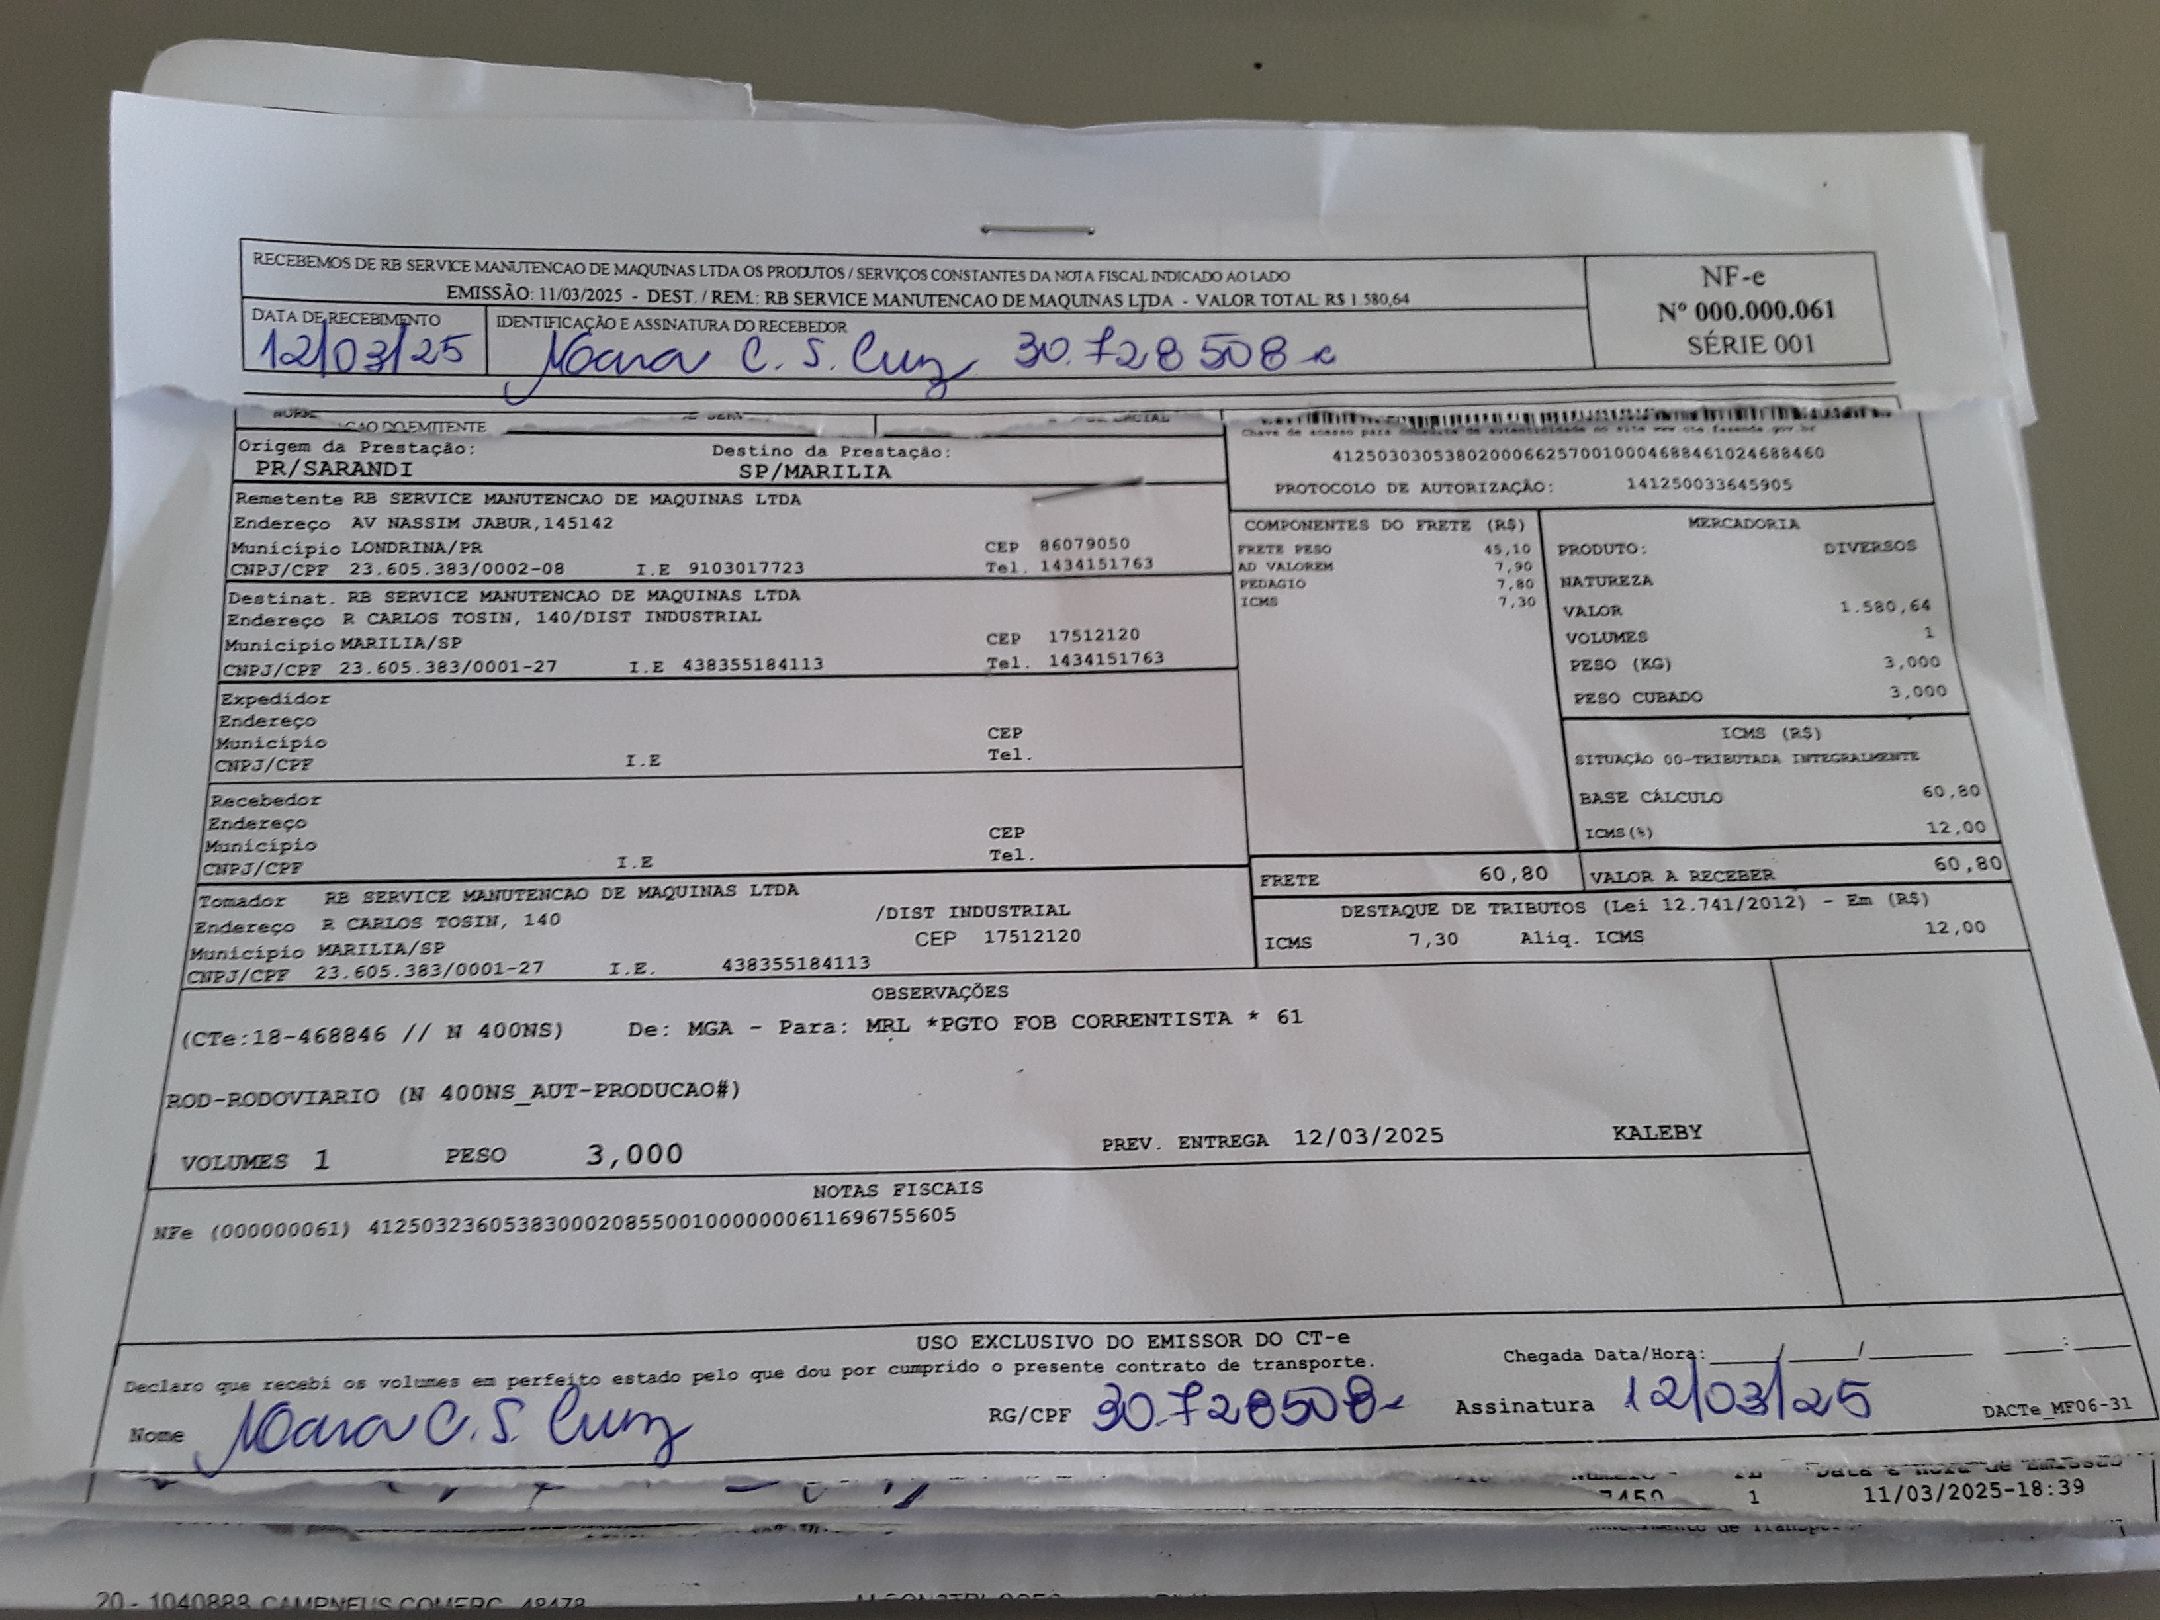 RECEBEMOS DE RB SERVICE MANUTENCAO DE MAQUINAS LTDA OS PRODUTOS / SERVIÇOS CONSTANTES DA NOTA FISCAL INDICADO AO LADO
EMISSÃO: 11/03/2025 - DEST. / REM.: RB SERVICE MANUTENCAO DE MAQUINAS LTDA - VALOR TOTAL: R$ 1.580,64
NF-e
Nº 000.000.061
SÉRIE 001
DATA DE RECEBIMENTO
12/03/25
IDENTIFICAÇÃO E ASSINATURA DO RECEBEDOR
Mara C. S. Cruz 30.728508-
DO EMITENTE
Origem da Prestação:
PR/SARANDI
Destino da Prestação:
SP/MARILIA
Chave de acesso para consulta de autenticidade no site www cte fazenda.gov.br
41250303053802000662570010004688461024688460
PROTOCOLO DE AUTORIZAÇÃO: 141250033645905
Remetente RB SERVICE MANUTENCAO DE MAQUINAS LTDA
Endereço AV NASSIM JABUR,145142
Município LONDRINA/PR CEP 86079050
CNPJ/CPF 23.605.383/0002-08 I.E 9103017723 Tel. 1434151763
Destinat. RB SERVICE MANUTENCAO DE MAQUINAS LTDA
Endereço R CARLOS TOSIN, 140/DIST INDUSTRIAL
Município MARILIA/SP CEP 17512120
CNPJ/CPF 23.605.383/0001-27 I.E 438355184113 Tel. 1434151763
Expedidor
Endereço
Município CEP
CNPJ/CPF I.E Tel.
Recebedor
Endereço
Município CEP
CNPJ/CPF I.E Tel.
Tomador RB SERVICE MANUTENCAO DE MAQUINAS LTDA
Endereço R CARLOS TOSIN, 140 /DIST INDUSTRIAL
Município MARILIA/SP CEP 17512120
CNPJ/CPF 23.605.383/0001-27 I.E. 438355184113
COMPONENTES DO FRETE (R$)
FRETE PESO 45,10
AD VALOREM 7,90
PEDAGIO 7,80
ICMS 7,30
MERCADORIA
PRODUTO: DIVERSOS
NATUREZA
VALOR 1.580,64
VOLUMES 1
PESO (KG) 3,000
PESO CUBADO 3,000
ICMS (R$)
SITUAÇÃO 00-TRIBUTADA INTEGRALMENTE
BASE CÁLCULO 60,80
ICMS(%) 12,00
FRETE 60,80
VALOR A RECEBER 60,80
DESTAQUE DE TRIBUTOS (Lei 12.741/2012) - Em (R$)
ICMS 7,30 Aliq. ICMS 12,00
OBSERVAÇÕES
(CTe:18-468846 // N 400NS) De: MGA - Para: MRL *PGTO FOB CORRENTISTA * 61
ROD-RODOVIARIO (N 400NS_AUT-PRODUCAO#)
VOLUMES 1 PESO 3,000 PREV. ENTREGA 12/03/2025 KALEBY
NOTAS FISCAIS
NFe (000000061) 41250323605383000208550010000000611696755605
USO EXCLUSIVO DO EMISSOR DO CT-e
Declaro que recebi os volumes em perfeito estado pelo que dou por cumprido o presente contrato de transporte.
Chegada Data/Hora:____/____/______ ___:___
Nome Mara C. S. Cruz RG/CPF 30.728508- Assinatura 12/03/25
DACTe_MF06-31
Data e Hora de Emissão
1 11/03/2025-18:39
20 - 1040888 CAMPNEUS COMERC 48478